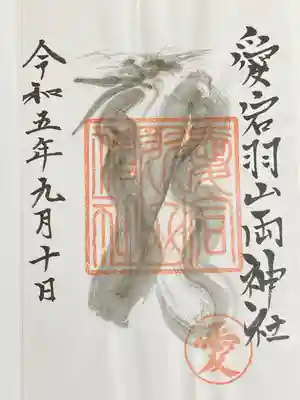 愛宕羽山両神社
令和五年九月十日
愛